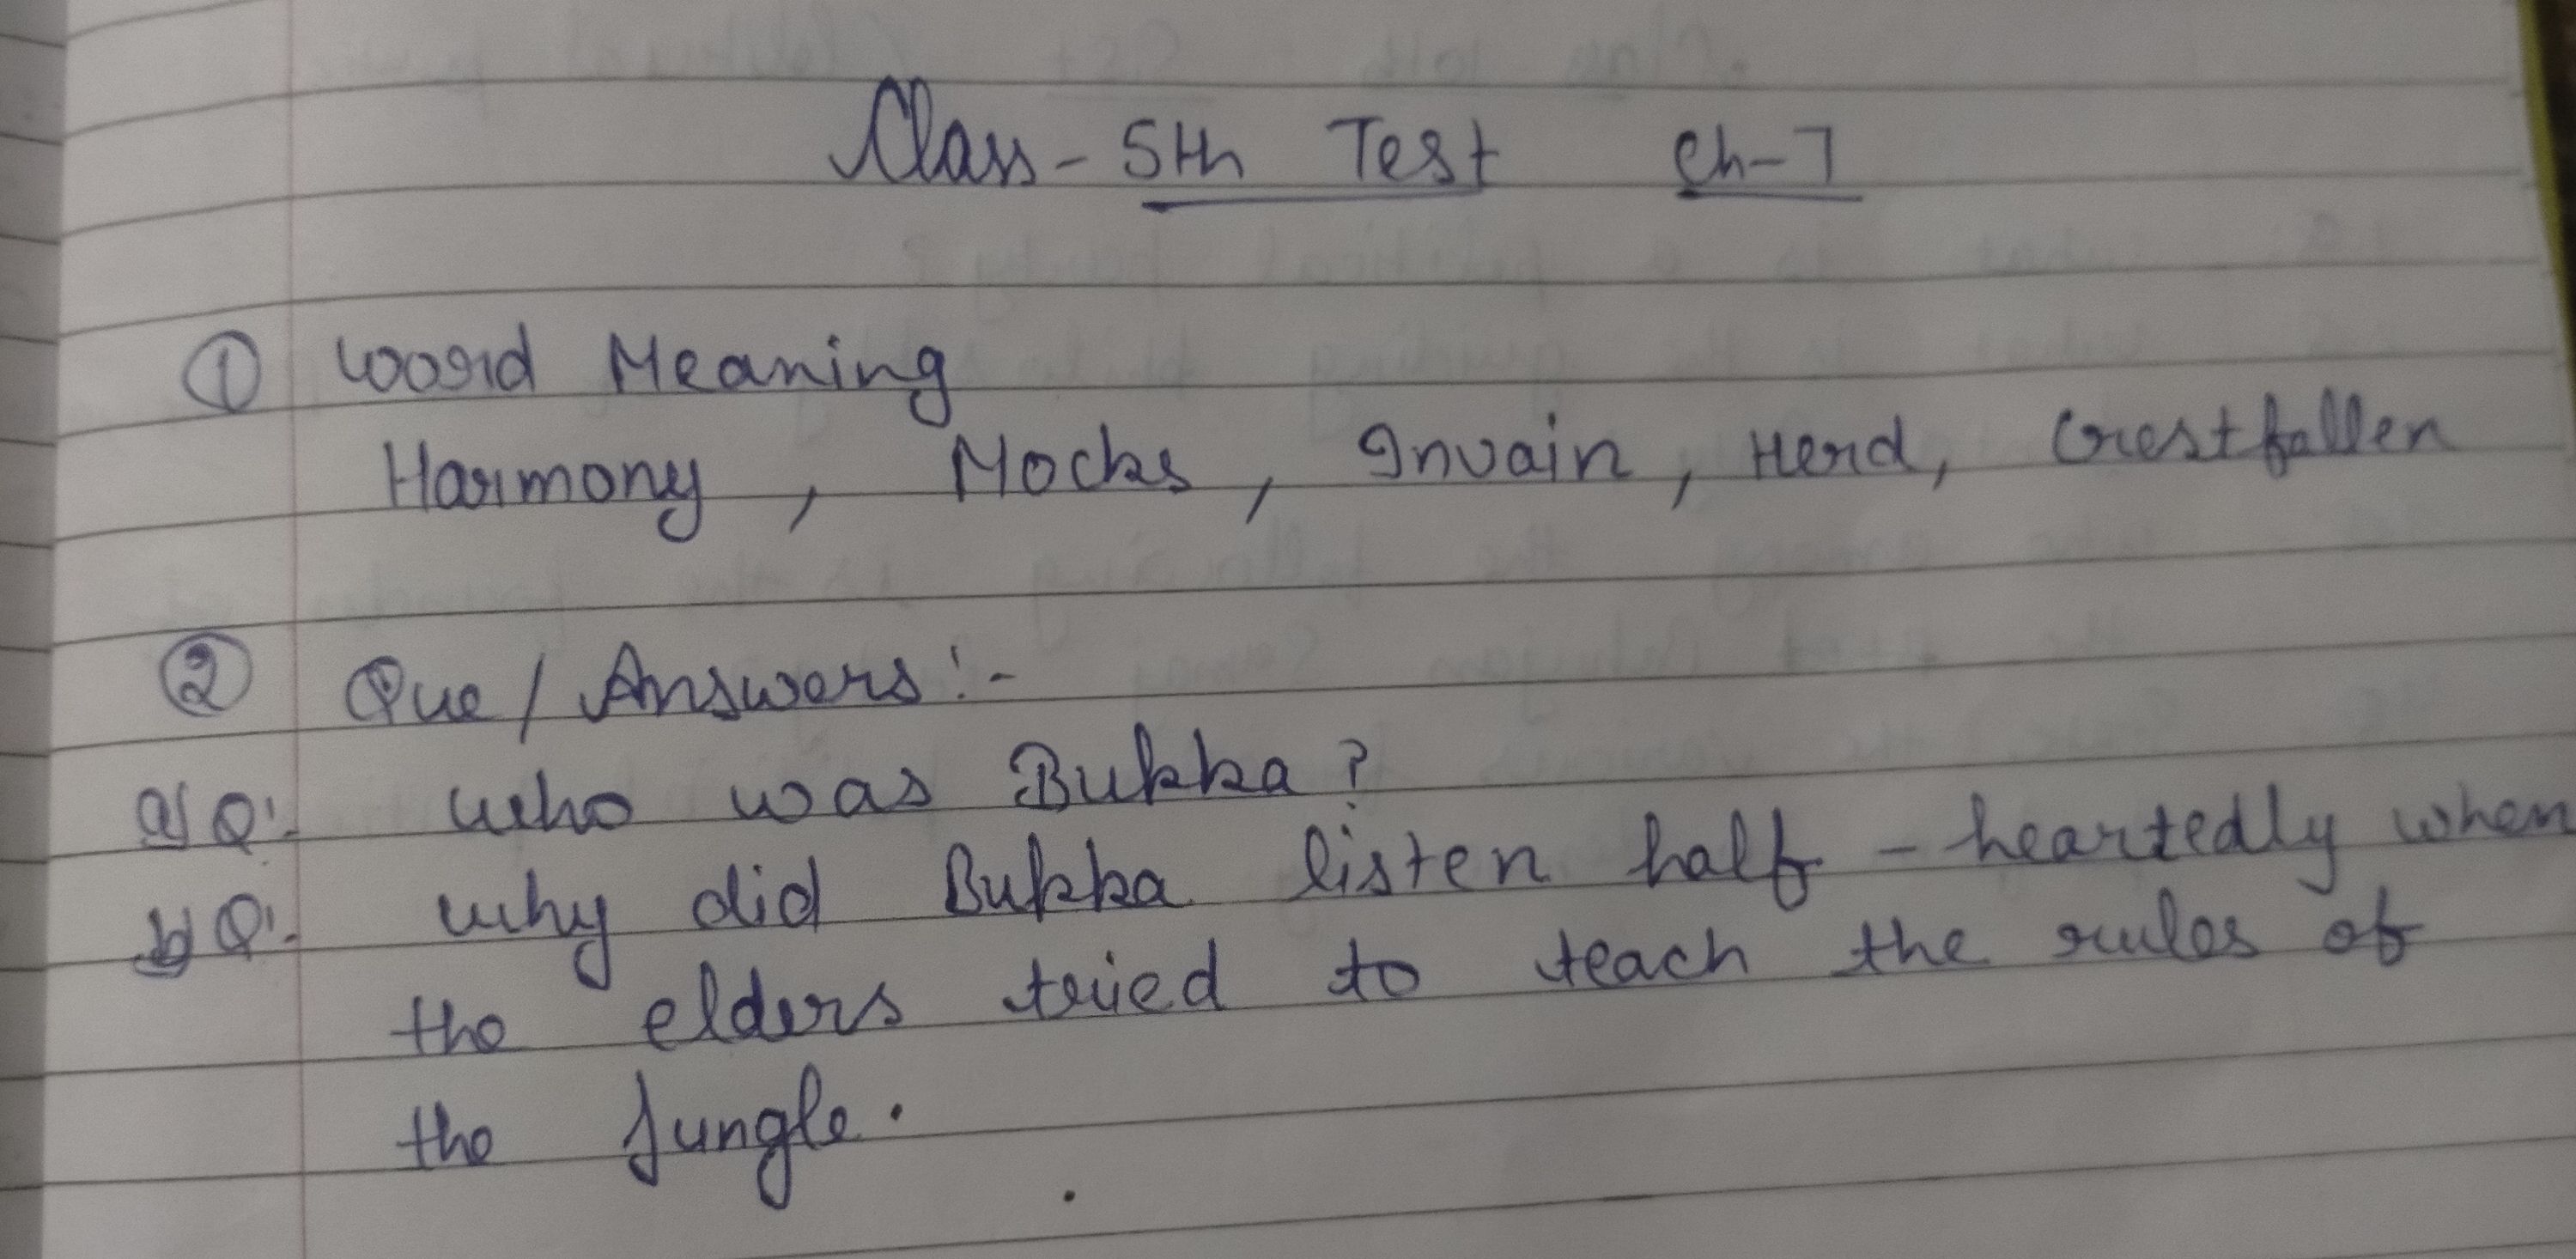 Class - 5th Test Ch-7
① Word Meaning
Harmony, Mocks, Invain, Herd, Crestfallen
② Que/Answers:-
a) Q:- who was Bukka?
b) Q:- why did Bukka listen half-heartedly when
the elders tried to teach the rules of
the Jungle.